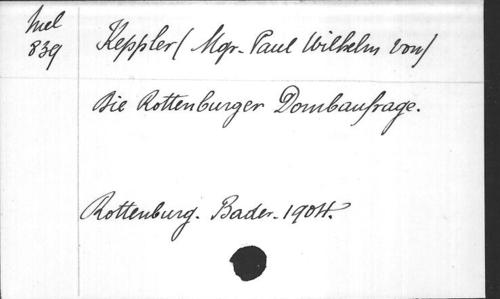 Mel
839
Keppler (Mgr. Paul Wilhelm von)
Die Rottenburger Dombaufrage.
Rottenburg. Bader. 1904.